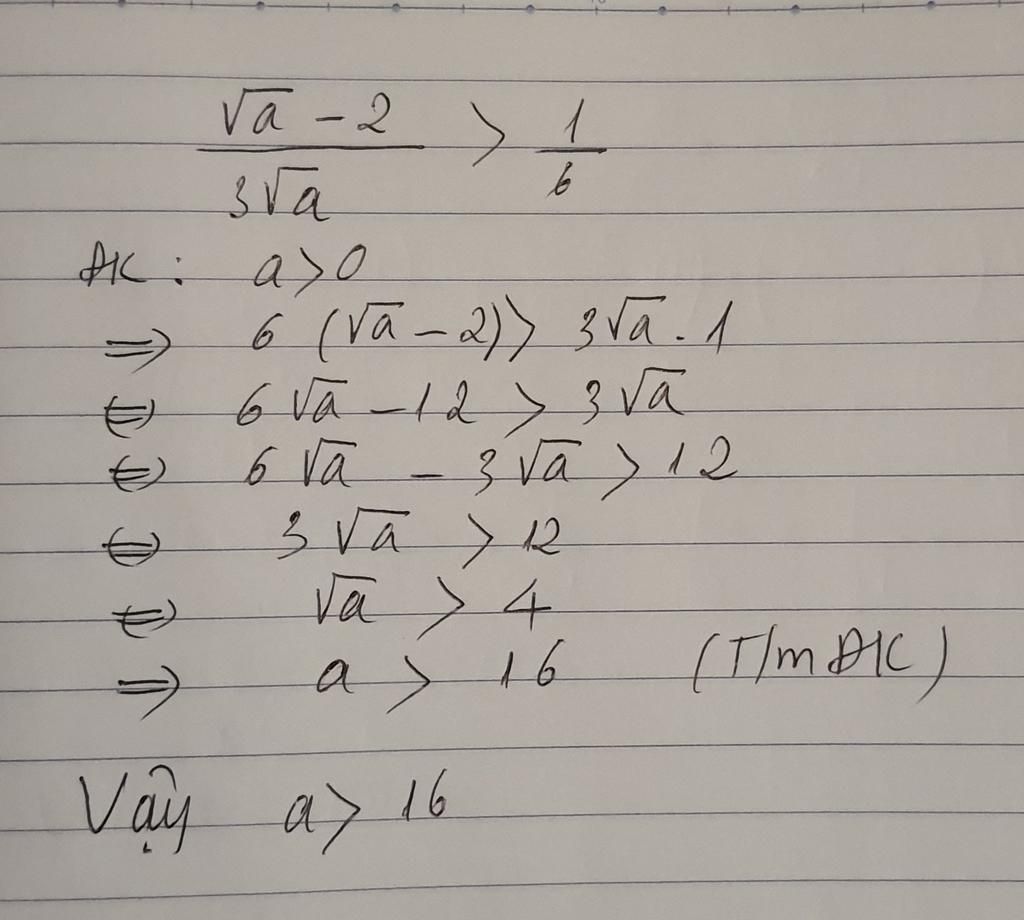 √a - 2 / 3√a > 1/6
ĐK : a > 0
⇒ 6 (√a - 2) > 3√a . 1
⇔ 6√a - 12 > 3√a
⇔ 6√a - 3√a > 12
⇔ 3√a > 12
⇔ √a > 4
⇒ a > 16 (T/m ĐK)
Vậy a > 16